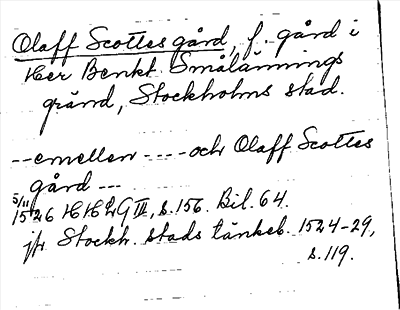 Olaff Scottes gård, f. gård i
Her Benkt Smålännings
gränd, Stockholms stad.
--emellen ---- och Olaff Scottes
gård ---
5/11 1526 HHLG III, s. 156. Bil. 64.
jfr Stockh. stads tänkeb. 1524-29,
s. 119.